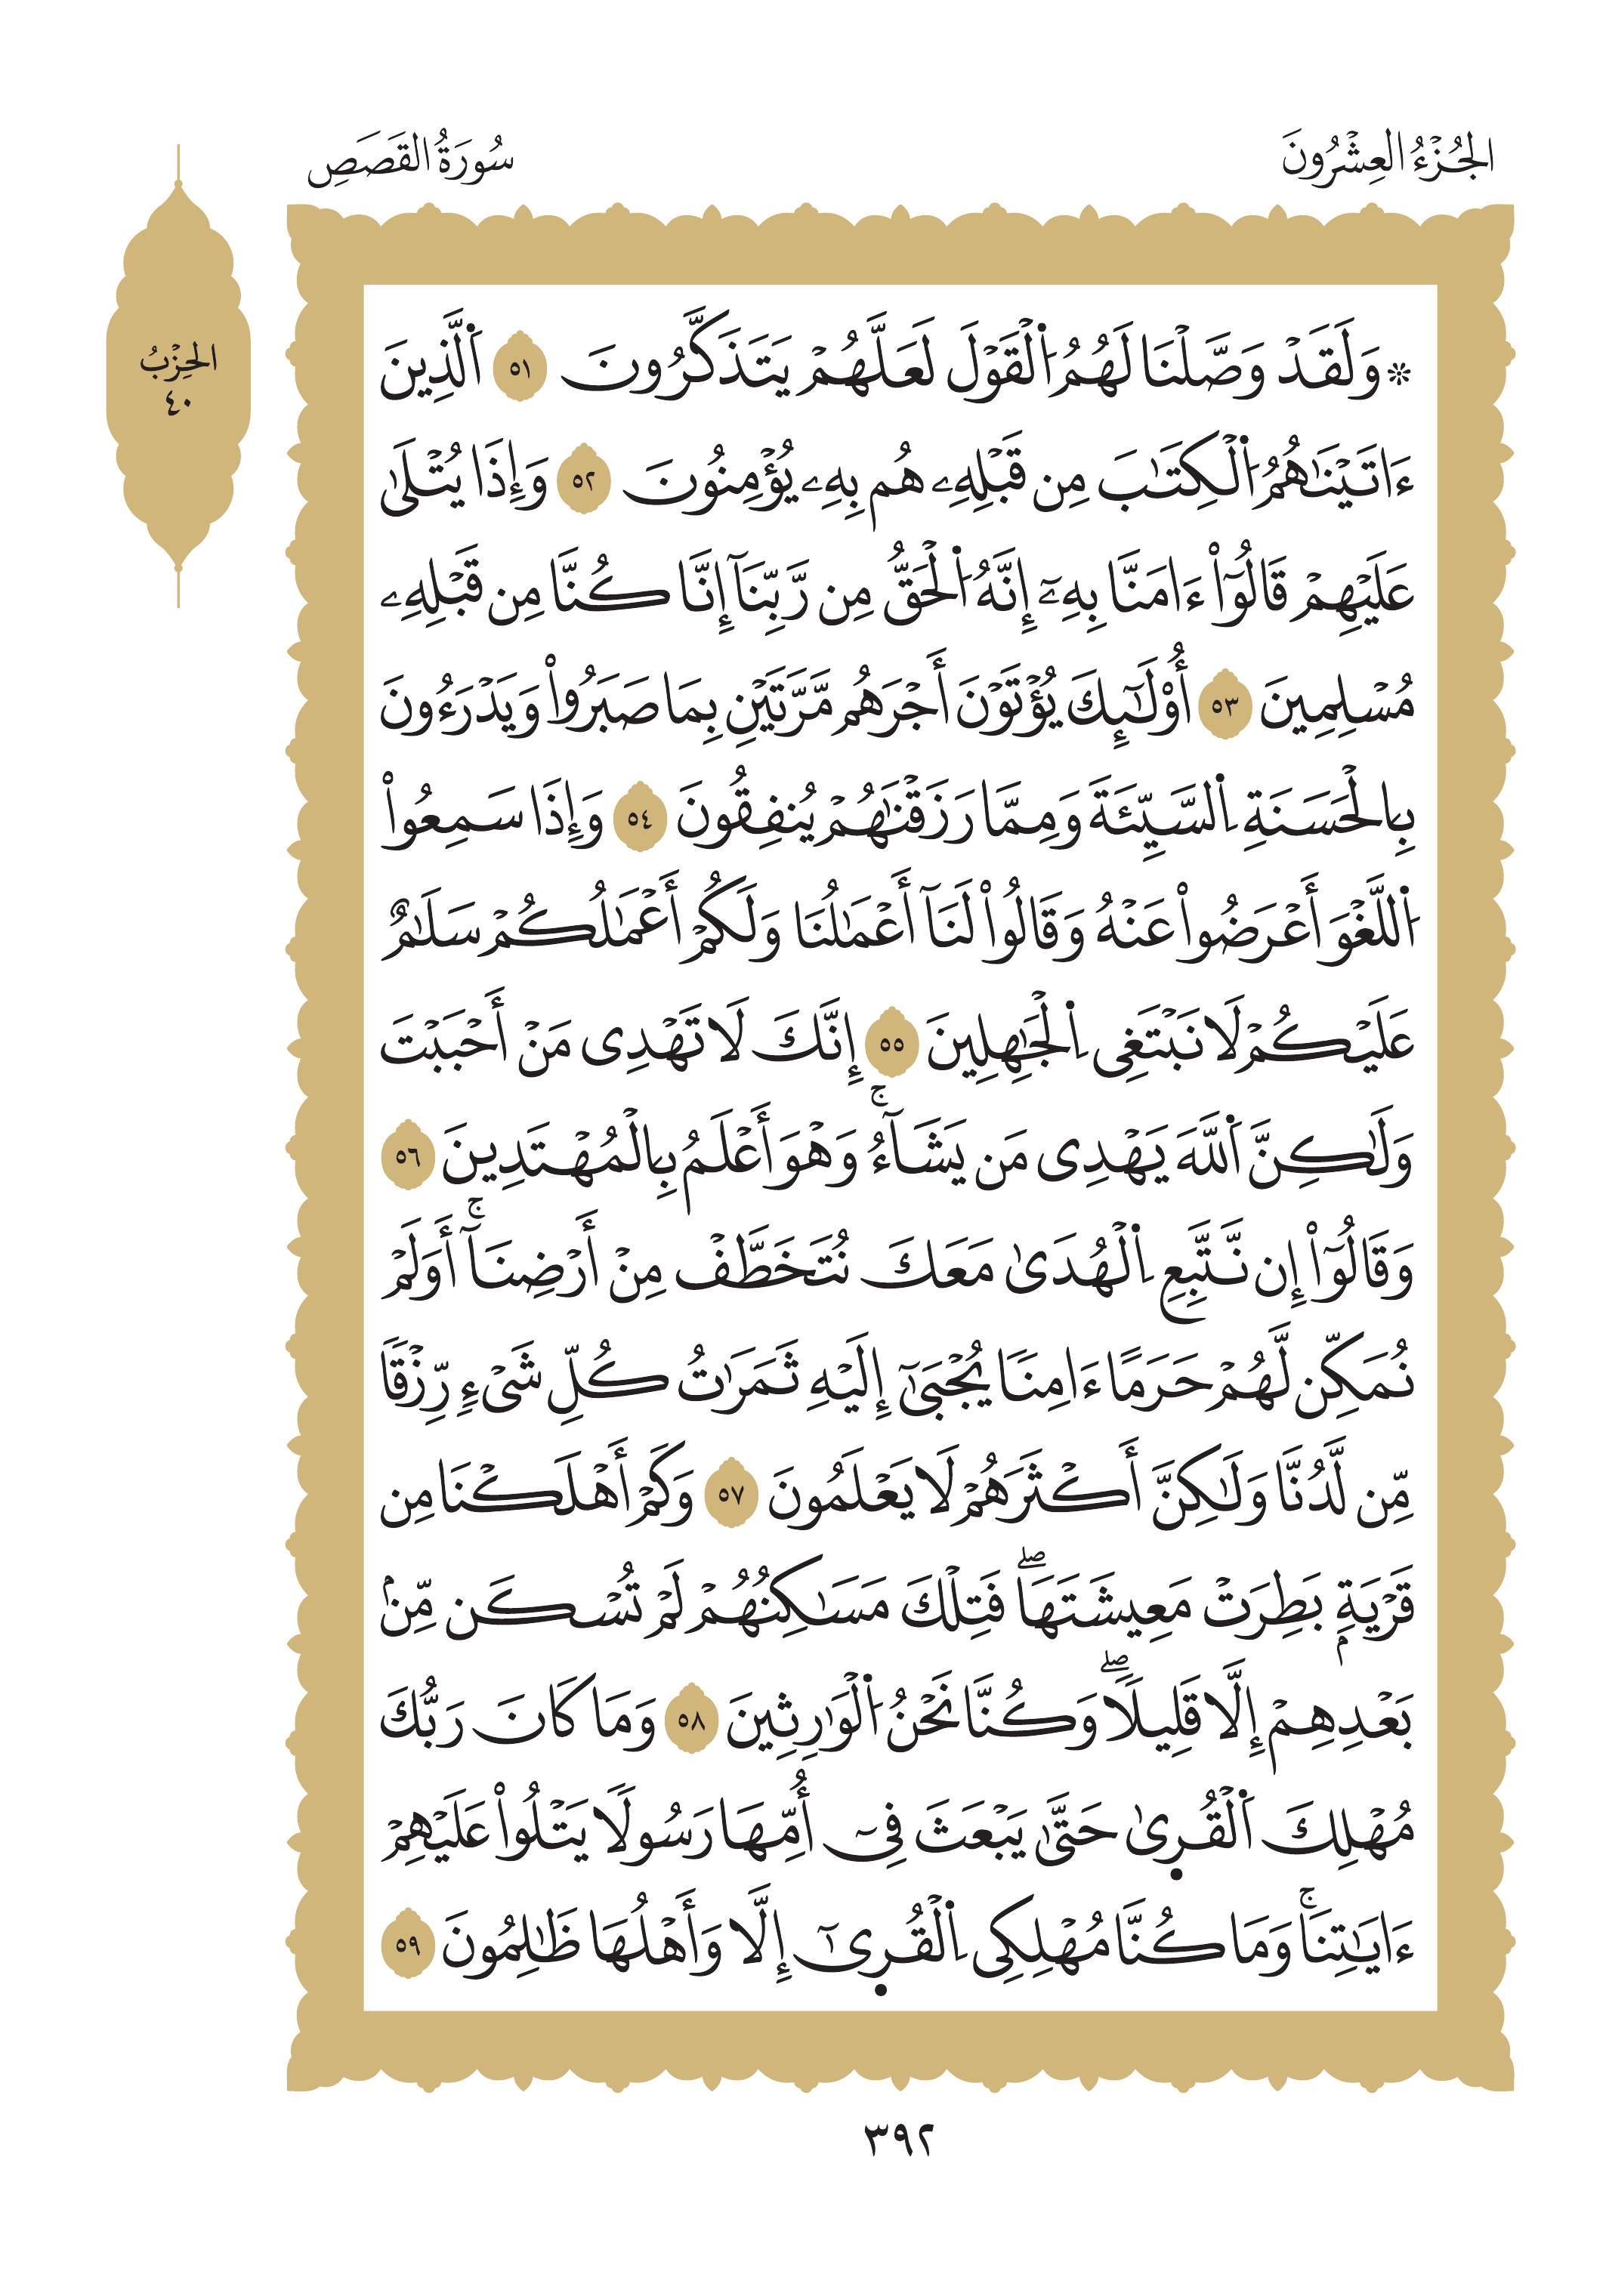 الجُزْءُ العِشْرُونَ
سُورَةُ القَصَصِ
الحِزْبُ
٤٠
۞ وَلَقَدْ وَصَّلْنَا لَهُمُ اُ۬لْقَوْلَ لَعَلَّهُمْ يَتَذَكَّرُونَ ٥١ اَ۬لَّذِينَ
ءَاتَيْنَٰهُمُ اُ۬لْكِتَٰبَ مِن قَبْلِهِۦ هُم بِهِۦ يُؤْمِنُونَ ٥٢ وَإِذَا يُتْلَىٰ
عَلَيْهِمْ قَالُوٓاْ ءَامَنَّا بِهِۦٓ إِنَّهُ اُ۬لْحَقُّ مِن رَّبِّنَآ إِنَّا كُنَّا مِن قَبْلِهِۦ
مُسْلِمِينَ ٥٣ أُوْلَٰٓئِكَ يُؤْتَوْنَ أَجْرَهُم مَّرَّتَيْنِ بِمَا صَبَرُواْ وَيَدْرَءُونَ
بِا۬لْحَسَنَةِ اِ۬لسَّيِّئَةَ وَمِمَّا رَزَقْنَٰهُمْ يُنفِقُونَ ٥٤ وَإِذَا سَمِعُواْ
اُ۬للَّغْوَ أَعْرَضُواْ عَنْهُ وَقَالُواْ لَنَآ أَعْمَٰلُنَا وَلَكُمْ أَعْمَٰلُكُمْ سَلَٰمٌ
عَلَيْكُمْ لَا نَبْتَغِى اِ۬لْجَٰهِلِينَ ٥٥ إِنَّكَ لَا تَهْدِى مَنْ أَحْبَبْتَ
وَلَٰكِنَّ اَ۬للَّهَ يَهْدِى مَن يَشَآءُۚ وَهْوَ أَعْلَمُ بِا۬لْمُهْتَدِينَ ٥٦
وَقَالُوٓاْ إِن نَّتَّبِعِ اِ۬لْهُدَىٰ مَعَكَ نُتَخَطَّفْ مِنْ أَرْضِنَآۚ أَوَلَمْ
نُمَكِّن لَّهُمْ حَرَمًا ءَامِنًا يُجْبَىٰٓ إِلَيْهِ ثَمَرَٰتُ كُلِّ شَىْءٍ رِّزْقًا
مِّن لَّدُنَّا وَلَٰكِنَّ أَكْثَرَهُمْ لَا يَعْلَمُونَ ٥٧ وَكَمْ أَهْلَكْنَا مِن
قَرْيَةِۭ بَطِرَتْ مَعِيشَتَهَاۖ فَتِلْكَ مَسَٰكِنُهُمْ لَمْ تُسْكَن مِّنۢ
بَعْدِهِمْ إِلَّا قَلِيلًاۖ وَكُنَّا نَحْنُ اُ۬لْوَٰرِثِينَ ٥٨ وَمَا كَانَ رَبُّكَ
مُهْلِكَ اَ۬لْقُر۪ىٰ حَتَّىٰ يَبْعَثَ فِىٓ أُمِّهَا رَسُولًا يَتْلُواْ عَلَيْهِمْ
ءَايَٰتِنَاۚ وَمَا كُنَّا مُهْلِكِى اِ۬لْقُر۪ىٰٓ إِلَّا وَأَهْلُهَا ظَٰلِمُونَ ٥٩
٣٩٢